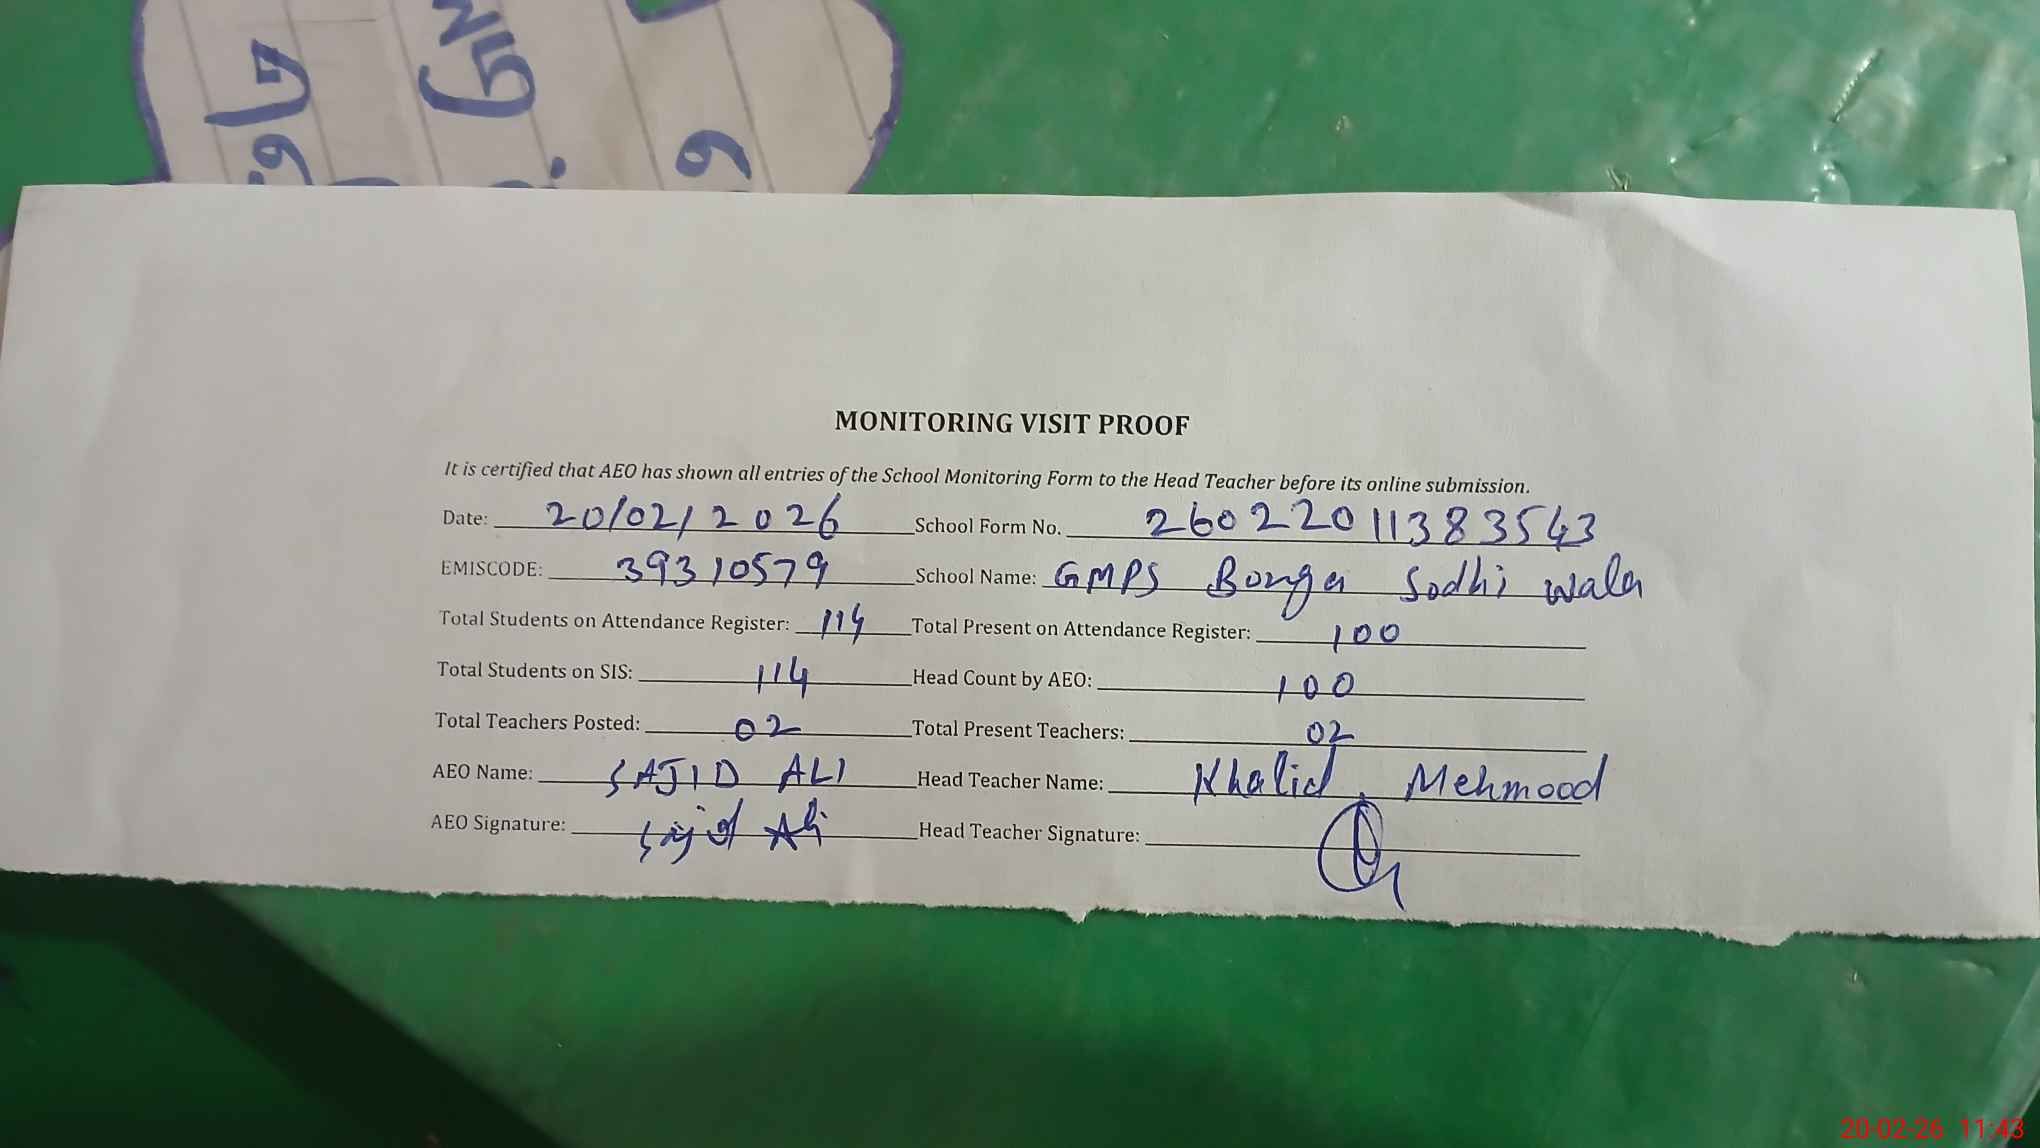 MONITORING VISIT PROOF
It is certified that AEO has shown all entries of the School Monitoring Form to the Head Teacher before its online submission.
Date: 20/02/2026 School Form No. 26022011383543
EMISCODE: 39310579 School Name: GMPS Bonga Sodhi wala
Total Students on Attendance Register: 114 Total Present on Attendance Register: 100
Total Students on SIS: 114 Head Count by AEO: 100
Total Teachers Posted: 02 Total Present Teachers: 02
AEO Name: SAJID ALI Head Teacher Name: Khalid Mehmood
AEO Signature: Sajid Ali Head Teacher Signature:
20-02-26 11:43